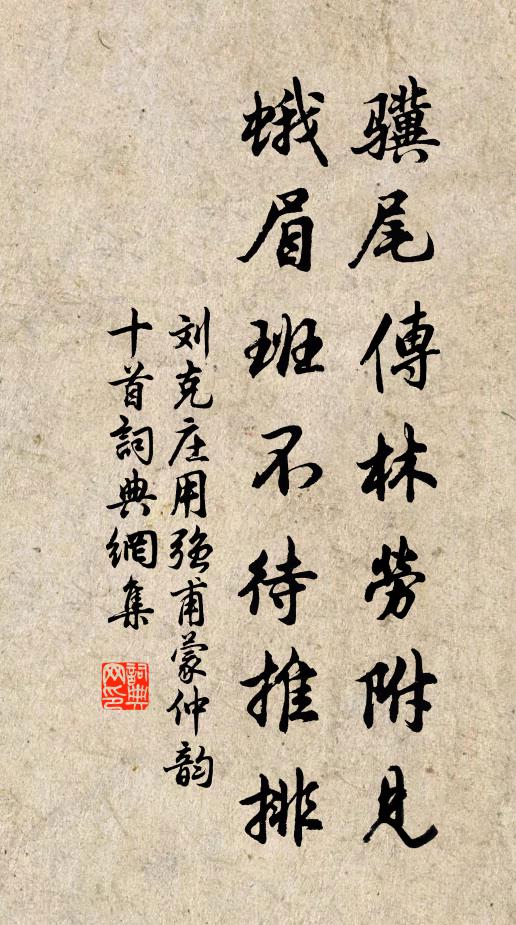 驥尾傳林勞附見
蛾眉班不待推排
刘克庄用強甫蒙仲韵
十首詞典網集
詞典网印